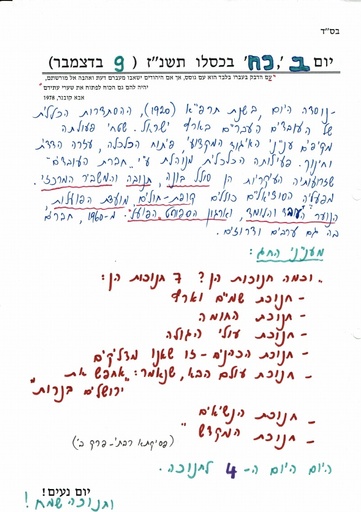 בס״ד
יום ב׳, כח׳ בכסלו תשנ״ז ( 9 בדצמבר)
"עם הדבק בעברו בלבד הוא עם גוסס, אך אם היהודים ישאבו מעברם דעת ואהבה אל מורשתם,
יהיה להם גם הכוח לפתוח את שערי עתידם"
אבא קובנר, 1978
-נוסדה היום, בשנת תרפ״א (1920), ההסתדרות הכללית
של העובדים העבריים בארץ ישראל. שטחי פעולתה
מקיפים ענייני האיגוד המקצועי, פיתוח הכלכלה, עזרה הדדית
וחינוך. פעילותה הכלכלית מנוהלת ע״י "חברת העובדים"
שזרועותיה העיקריות הן סולל בונה, תנובה והמשביר המרכזי.
מפעליה הסוציאלים כוללים קופת-חולים, מועצת הפועלות,
הנוער העובד והלומד, וארגון הספורט הפועל. מ-1960, חברים
בה גם ערבים ודרוזים.
מענייני החג:
"וכמה חנוכות הן? 7 חנוכות הן:
- חנוכת שמים וארץ
- חנוכת החומה
- חנוכת עולי הגולה
- חנוכת הכהנים - זו שאנו מדליקים
- חנוכת עולם הבא, שנאמר: "אחפש את
ירושלים בנרות"
- חנוכת הנשיאים
- חנוכת המקדש"
(פסיקתא רבתי - פרק ב׳)
היום היום ה-4 לחנוכה.
יום נעים!
וחנוכה שמח!